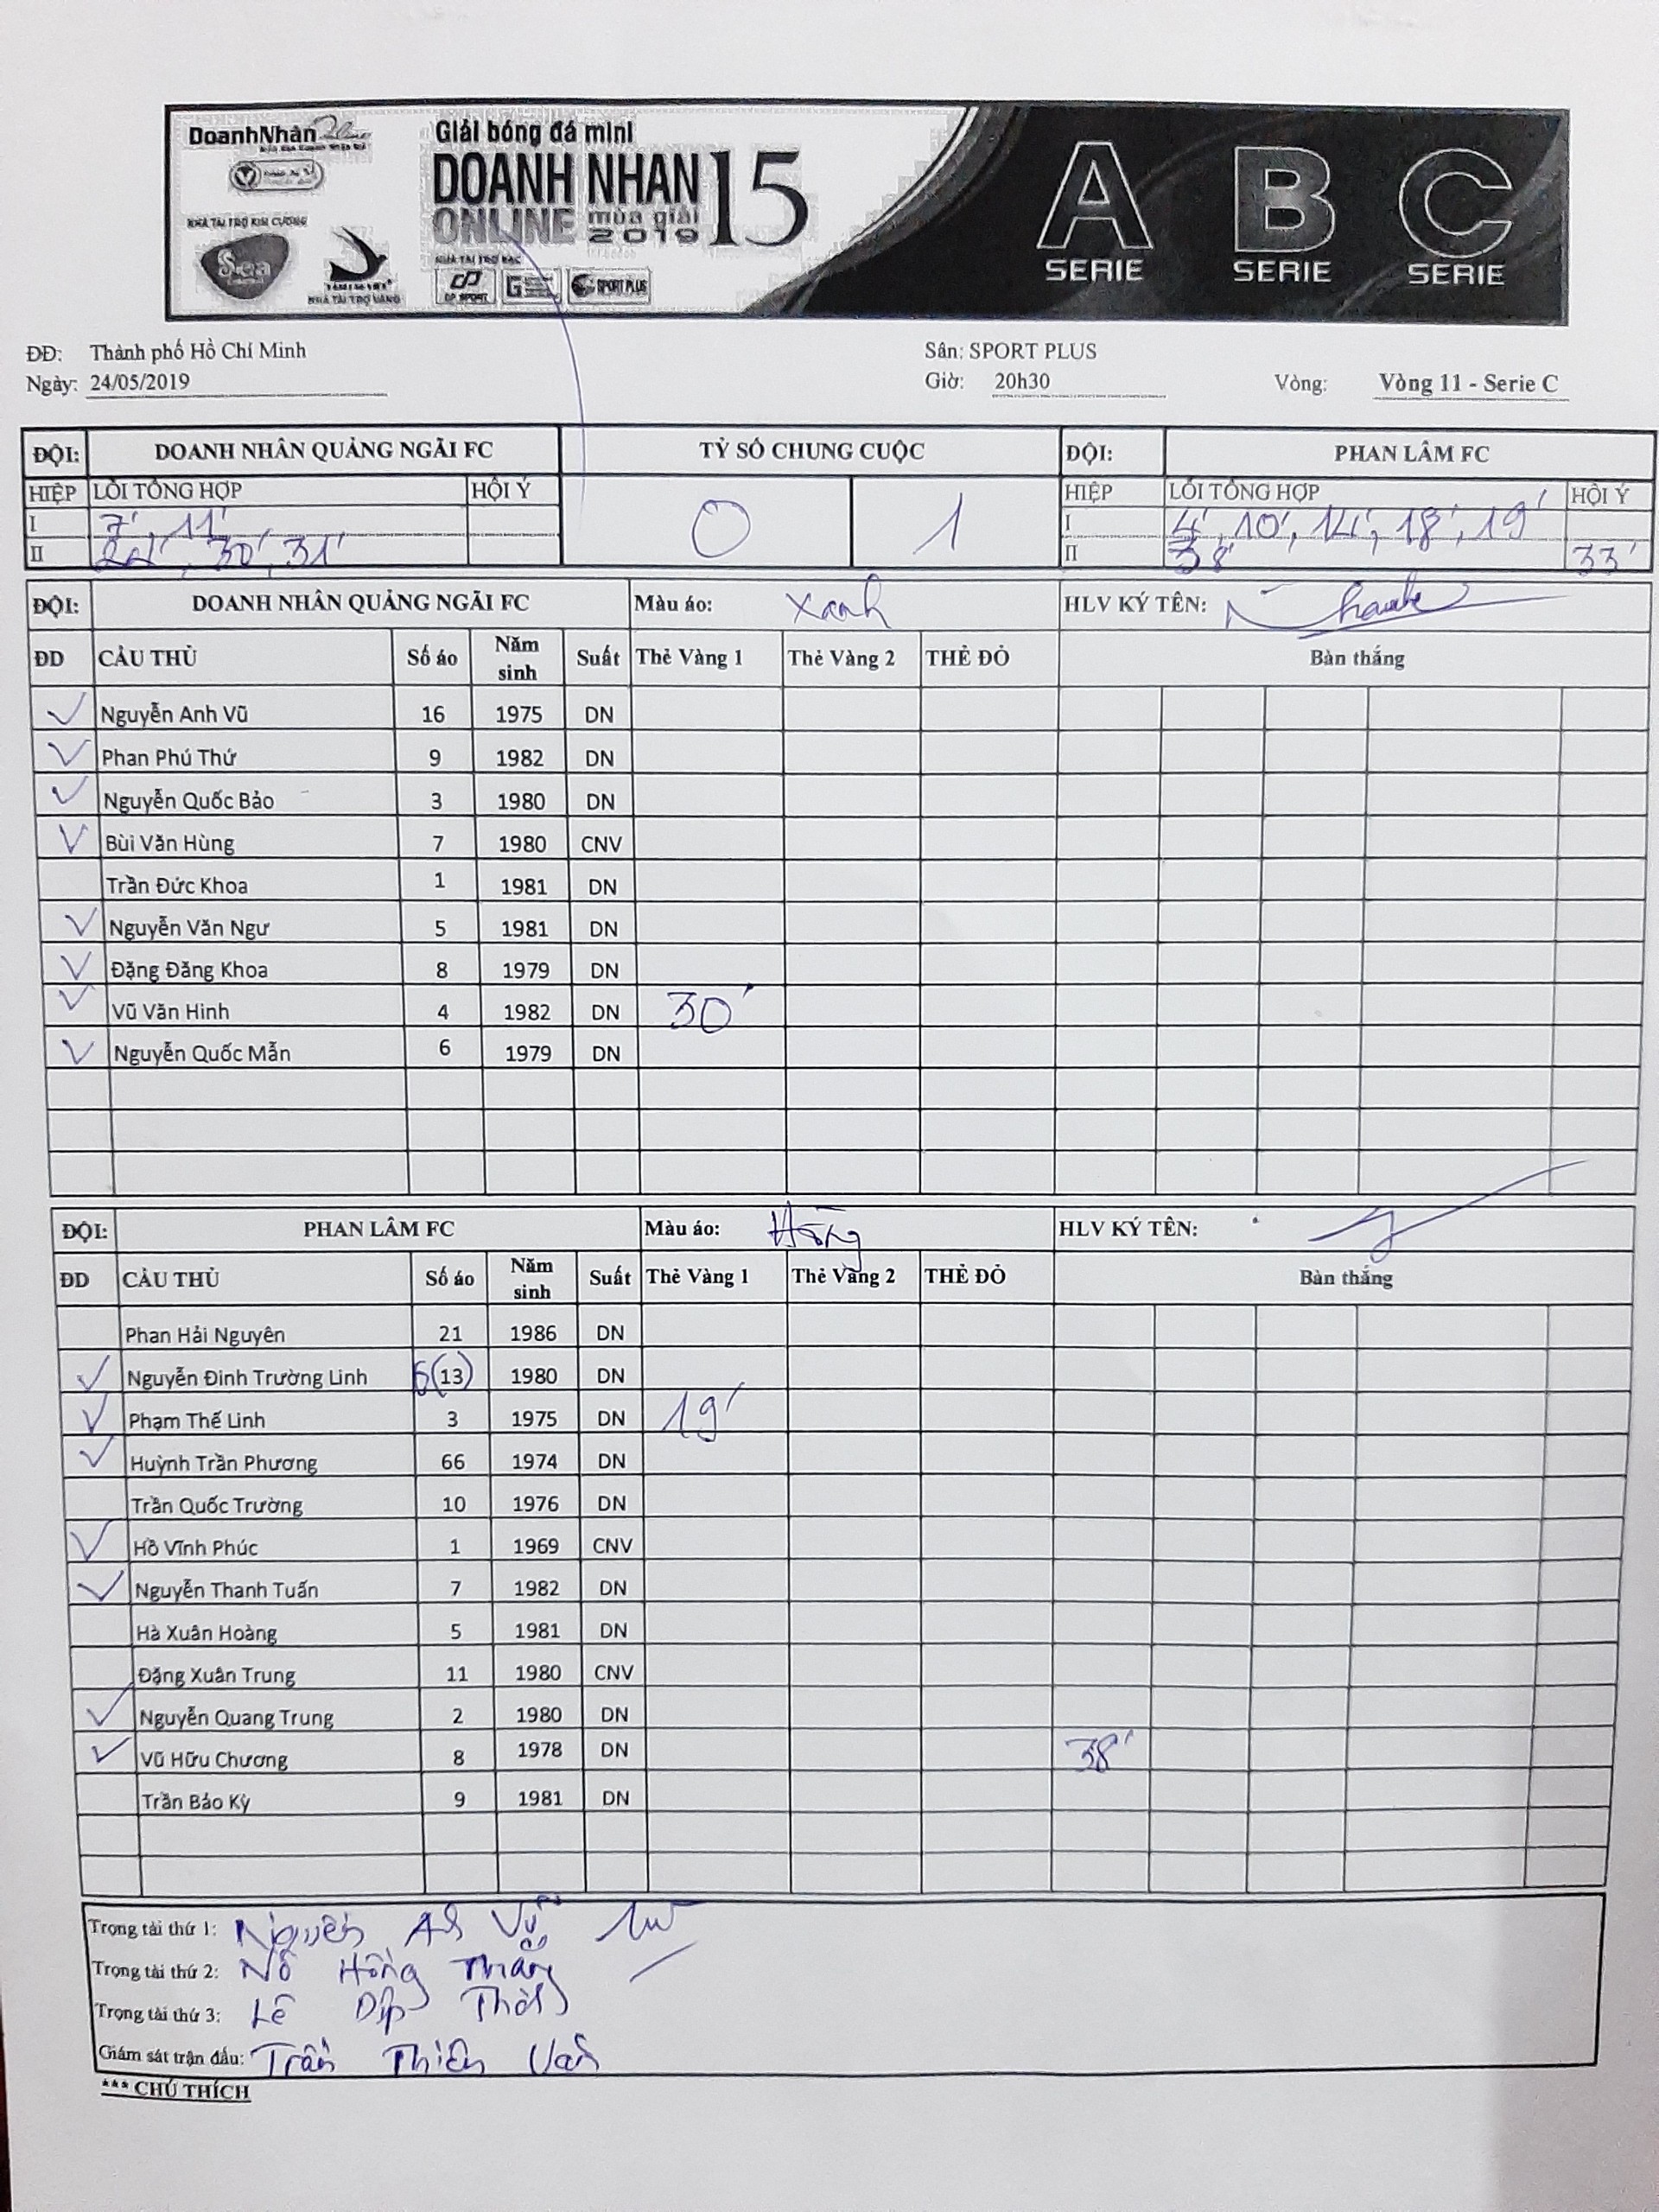 DoanhNhân
Giải bóng đá mini
DOANH NHAN 15
ONLINE mùa giải 2019
NHÀ TÀI TRỢ KIM CƯƠNG
Sea
NHÀ TÀI TRỢ VÀNG
NHÀ TÀI TRỢ BẠC
CP SPORT G SPORT PLUS
A B C
SERIE SERIE SERIE
ĐĐ: Thành phố Hồ Chí Minh Sân: SPORT PLUS
Ngày: 24/05/2019 Giờ: 20h30 Vòng: Vòng 11 - Serie C
ĐỘI: DOANH NHÂN QUẢNG NGÃI FC TỶ SỐ CHUNG CUỘC ĐỘI: PHAN LÂM FC
HIỆP LỖI TỔNG HỢP HỘI Ý 0 1 HIỆP LỖI TỔNG HỢP HỘI Ý
I 7', 11' I 4', 10', 14', 18', 19'
II 30', 31' II 38' 33'
ĐỘI: DOANH NHÂN QUẢNG NGÃI FC Màu áo: Xanh HLV KÝ TÊN:
ĐD CẦU THỦ Số áo Năm sinh Suất Thẻ Vàng 1 Thẻ Vàng 2 THẺ ĐỎ Bàn thắng
Nguyễn Anh Vũ 16 1975 DN
Phan Phú Thứ 9 1982 DN
Nguyễn Quốc Bảo 3 1980 DN
Bùi Văn Hùng 7 1980 CNV
Trần Đức Khoa 1 1981 DN
Nguyễn Văn Ngư 5 1981 DN
Đặng Đăng Khoa 8 1979 DN
Vũ Văn Hinh 4 1982 DN 30'
Nguyễn Quốc Mẫn 6 1979 DN
ĐỘI: PHAN LÂM FC Màu áo: Hồng HLV KÝ TÊN:
ĐD CẦU THỦ Số áo Năm sinh Suất Thẻ Vàng 1 Thẻ Vàng 2 THẺ ĐỎ Bàn thắng
Phan Hải Nguyên 21 1986 DN
Nguyễn Đinh Trường Linh (13) 1980 DN
Phạm Thế Linh 3 1975 DN 19'
Huỳnh Trần Phương 66 1974 DN
Trần Quốc Trường 10 1976 DN
Hồ Vĩnh Phúc 1 1969 CNV
Nguyễn Thanh Tuấn 7 1982 DN
Hà Xuân Hoàng 5 1981 DN
Đặng Xuân Trung 11 1980 CNV
Nguyễn Quang Trung 2 1980 DN
Vũ Hữu Chương 8 1978 DN 38'
Trần Bảo Kỳ 9 1981 DN
Trọng tài thứ 1: Nguyễn Anh Vũ
Trọng tài thứ 2: Hồng Thắng
Trọng tài thứ 3: Lê
Giám sát trận đấu: Trần Thiên
*** CHÚ THÍCH